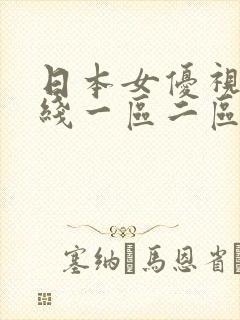 日本女優視
綫一區二區
塞納 馬恩省